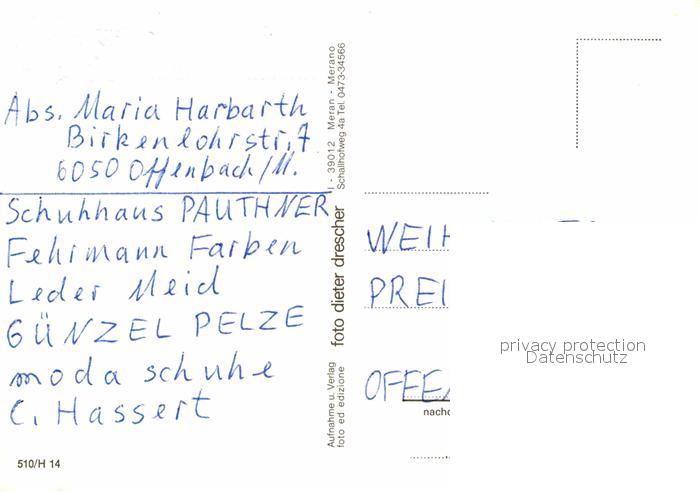 Abs. Maria Harbarth
Birkenlohrstr. 7
6050 Offenbach/M.
Schuhhaus PAUTHNER
Fehrmann Farben
Leder Meid
GÜNZEL PELZE
moda schuhe
C. Hassert
510/H 14
I - 39012 Meran - Merano
Schallhofweg 4a Tel. 0473-34566
foto dieter drescher
Aufnahme u. Verlag
foto ed edizione
WEIH
PREI
OFFE
nachd
privacy protection
Datenschutz